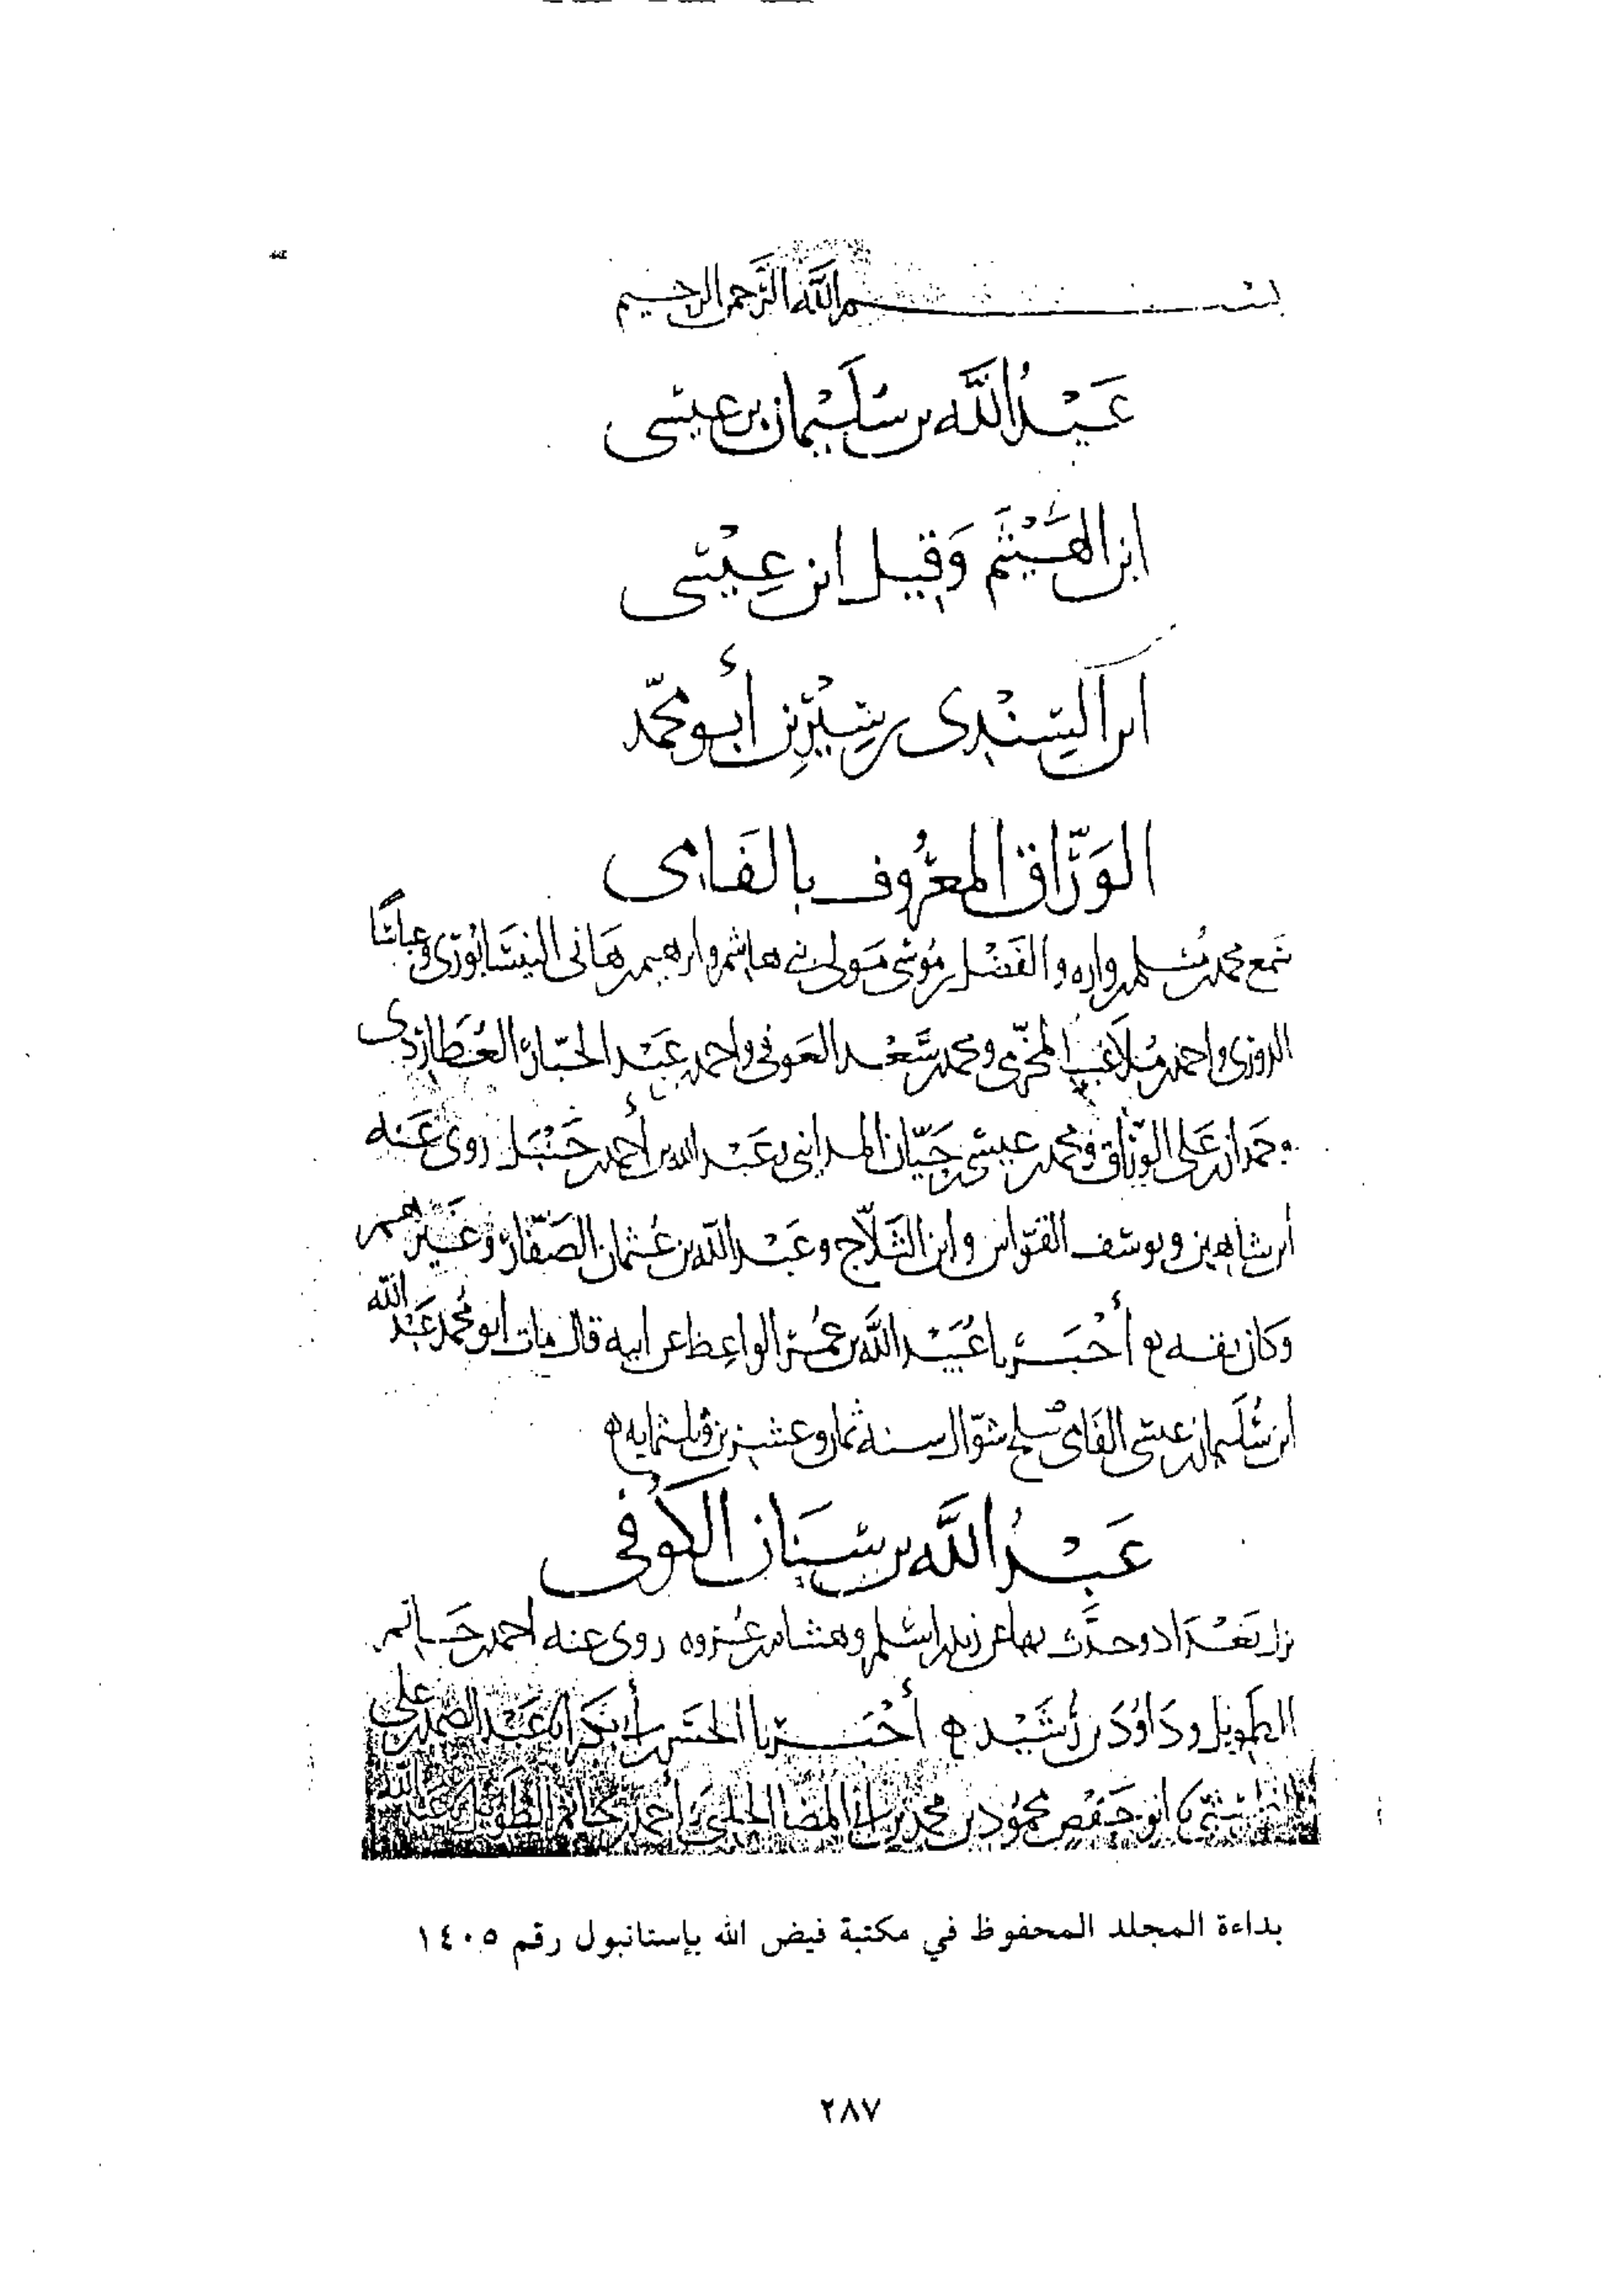 بسم الله الرحمن الرحيم
عَبْدُ اللَّه بن سُلَيْمان بن عيسى
ابن الهَيْثَم وَقِيل ابن عِيْسى
ابن السِّنْدي بن سِيْرِين أبو محمّد
الوَرَّاق المعرُوف بالفَامى
سَمع محمد بن مُسلم بن واره والفَضْل بن مُوسَى مَولى بني هاشم وابرهيم بن هَانى النيسَابُورى وعباسًا
الدوري واحمد بن مُلاعِب المخرّمي ومحمد بن سَعْد العَوفي واحمد بن عَبْد الجبّار العُطَارِدى
وحمدان بن عَلي الورّاق ومحمد بن عيسَى بن حَيّان المدايني وعَبْد الله بن أحمد بن حَنْبَل روى عَنه
ابن شاهين ويوسف القوّاس وابن الثَلاّج وعَبْد الله بن عُثمان الصَفّار وغيرهم
وكان ثقه أَخْبَرنا عُبَيْد اللَّه بن عُمَر الواعِظ عن ابيه قال مات ابو محمد عَبْد الله
ابن سُلَيمان بن عيسى الفَامى سلخ شوّال سنه ثمان وعشرين وثلثمايه
عَبْدُ اللَّه بن سِنَان الكوُفي
نزل بَغْدَاد وحدَّث بها عن زيد بن اسْلم وهشام بن عُروه روى عنه احمد بن حَاتم
الطَويل ودَاوُدَ بن رُشَيْد أَخْبَرنا الحسَن بن أبي بَكر انا عَبْد الصمد بن علي
الطستي نا ابو حَفْص محمُود بن محمد بن المضا الحلبي نا أحمد بن حاتم الطَويل نا عبد الله
بداءة المجلد المحفوظ في مكتبة فيض الله بإستانبول رقم ١٤٠٥
٢٨٧